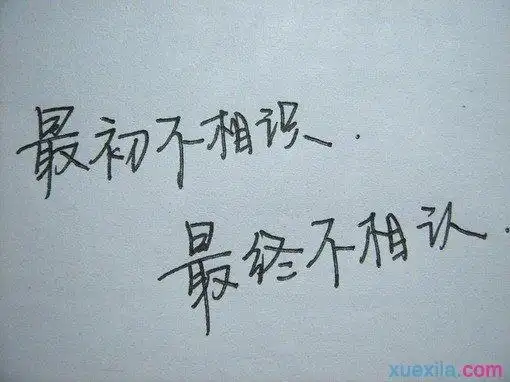 最初不相识.
最终不相认.
xuexila.com